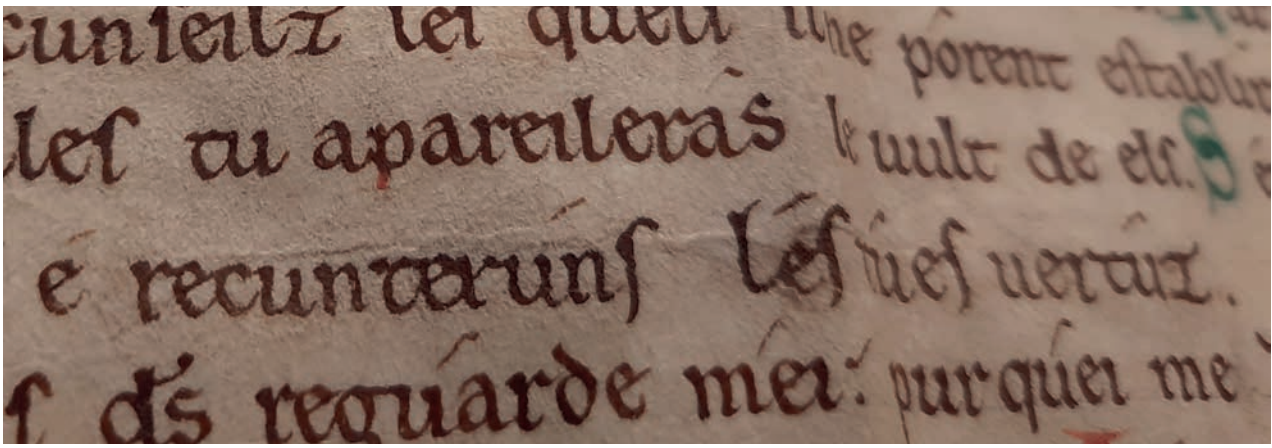 cunſeilz leſ ne pórent eſtablir
leſ tu apareileráſ le uult de elſ. S
é recunterúnſ léſ túeſ uertúz.
ſ dś reguárde méi: purquéi me